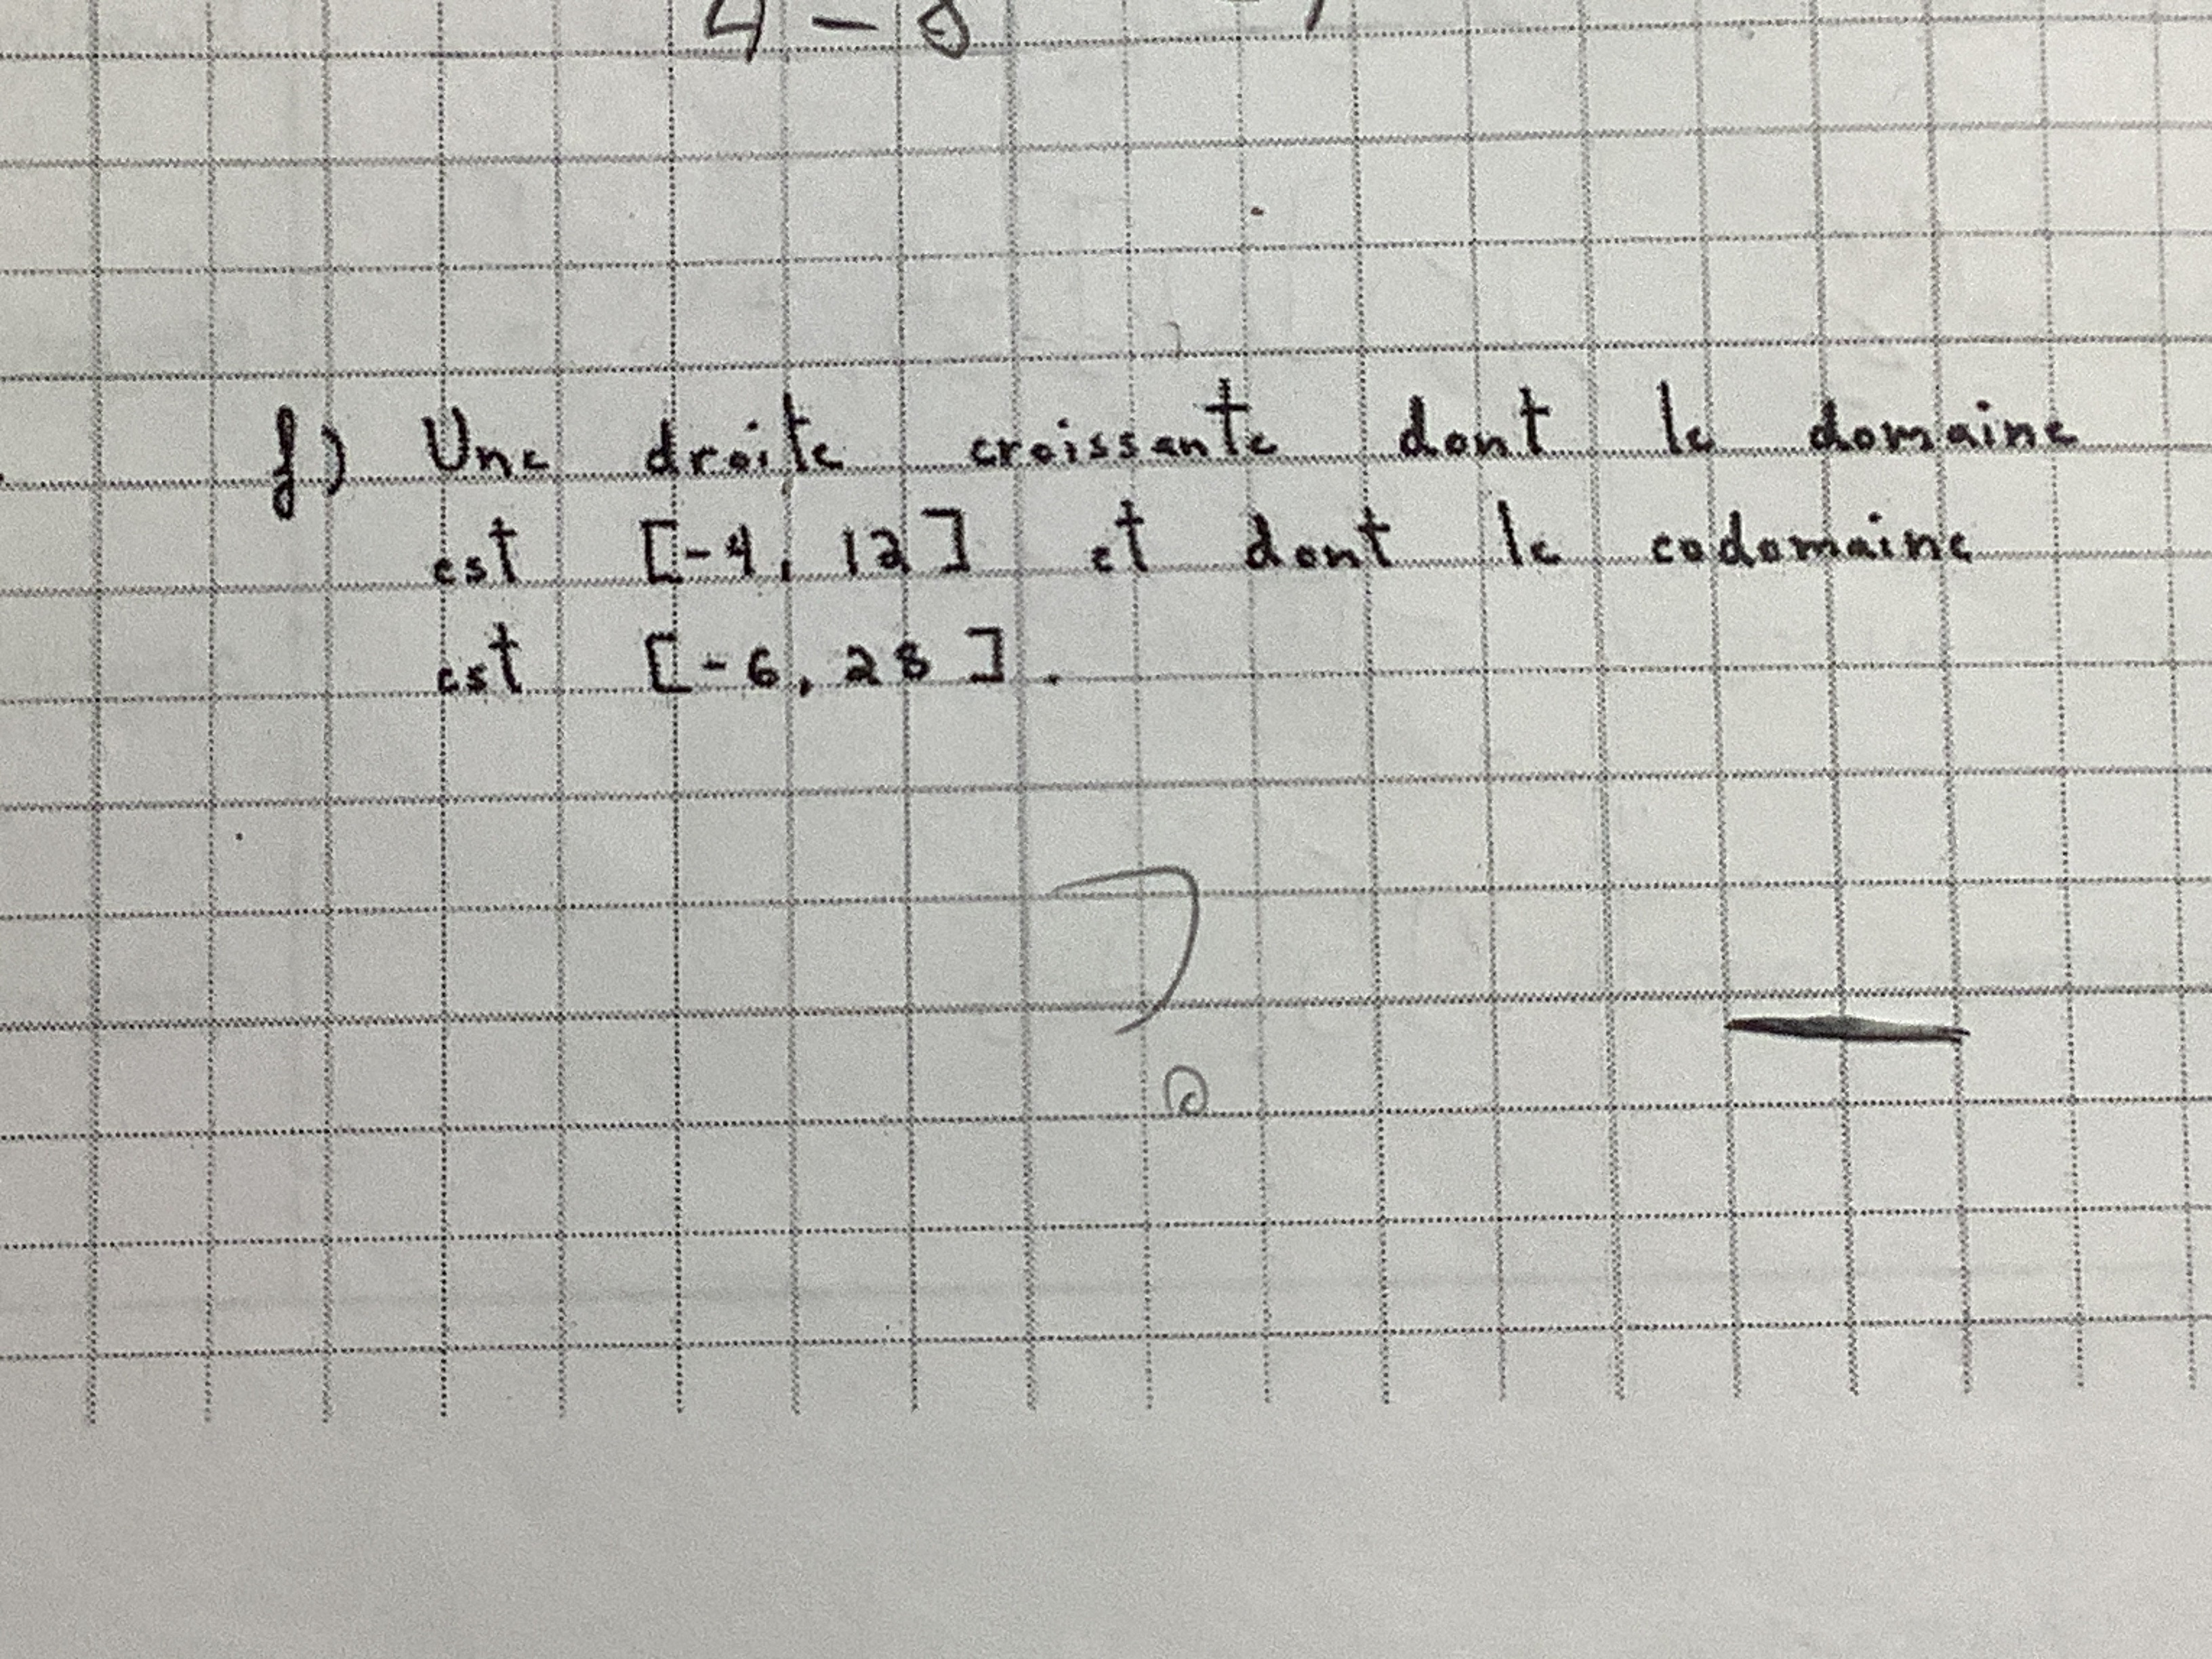 4 - 8
f) Une droite croissante dont le domaine
est [-4, 12] et dont le codomaine
est [-6, 28].
?